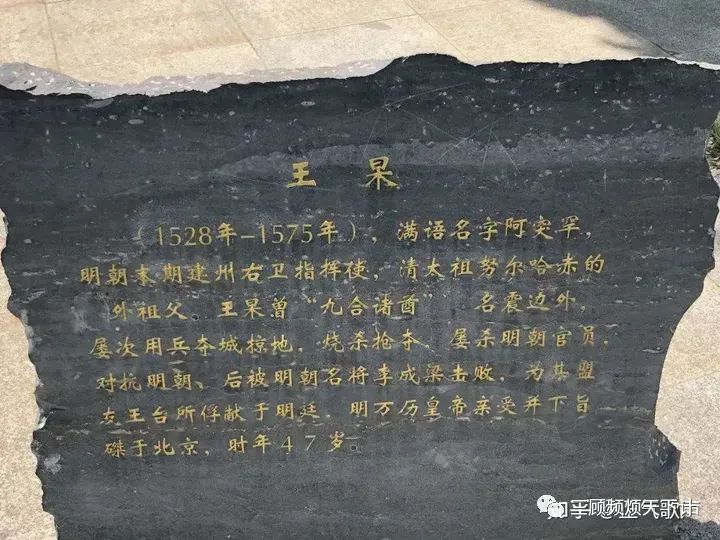 王杲
（1528年-1575年），满语名字阿突罕，
明朝末期建州右卫指挥使，清太祖努尔哈赤的
外祖父。王杲曾“九合诸酋” 名震边外，
屡次用兵夺城掠地，烧杀抢夺、屡杀明朝官员，
对抗明朝、后被明朝名将李成梁击败，为其盟
友王台所俘献于明廷，明万历皇帝亲受并下旨
磔于北京，时年47岁。